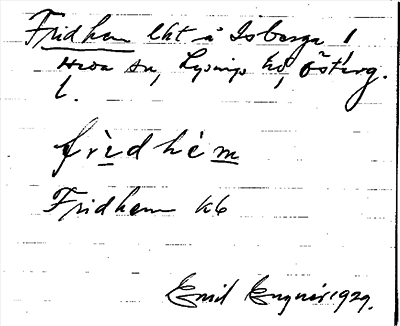 Fridhem lht å Isberga 1
Hwa sn, Lysings hd, Östtg.
l.
frìdhèm
Fridhem kb
Emil Enquis 1929.